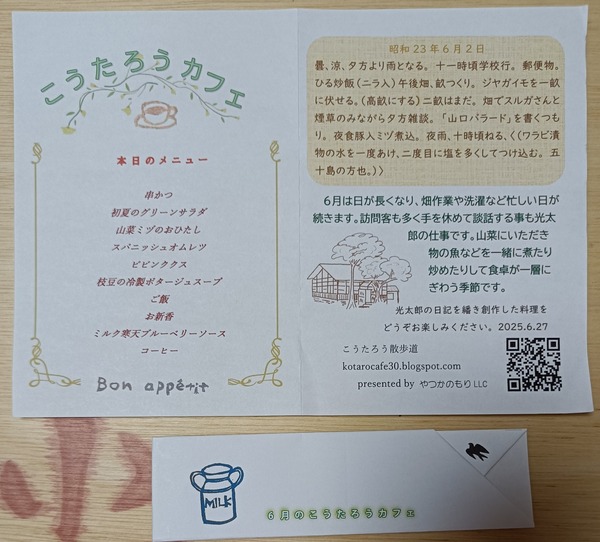 こうたろうカフェ
本日のメニュー
串かつ
初夏のグリーンサラダ
山菜ミヅのおひたし
スパニッシュオムレツ
ビビンククス
枝豆の冷製ポタージュスープ
ご飯
お新香
ミルク寒天ブルーベリーソース
コーヒー
Bon appétit
昭和23年6月2日
曇、涼、夕方より雨となる。十一時頃学校行。郵便物。
ひる炒飯(ニラ入)午後畑、畝つくり。ジヤガイモを一畝
に伏せる。(高畝にする)二畝はまだ。畑でスルガさんと
煙草のみながら夕方雑談。「山口バラード」を書くつも
り。夜食豚入ミヅ煮込。夜雨、十時頃ねる、〈(ワラビ漬
物の水を一度あけ、二度目に塩を多くしてつけ込む。五
十島の方也。)〉
6月は日が長くなり、畑作業や洗濯など忙しい日が
続きます。訪問客も多く手を休めて談話する事も光太
郎の仕事です。山菜にいただき
物の魚などを一緒に煮たり
炒めたりして食卓が一層に
ぎわう季節です。
光太郎の日記を繙き創作した料理を
どうぞお楽しみください。2025.6.27
こうたろう散歩道
kotarocafe30.blogspot.com
presented by やつかのもり LLC
MILK
6月のこうたろうカフェ